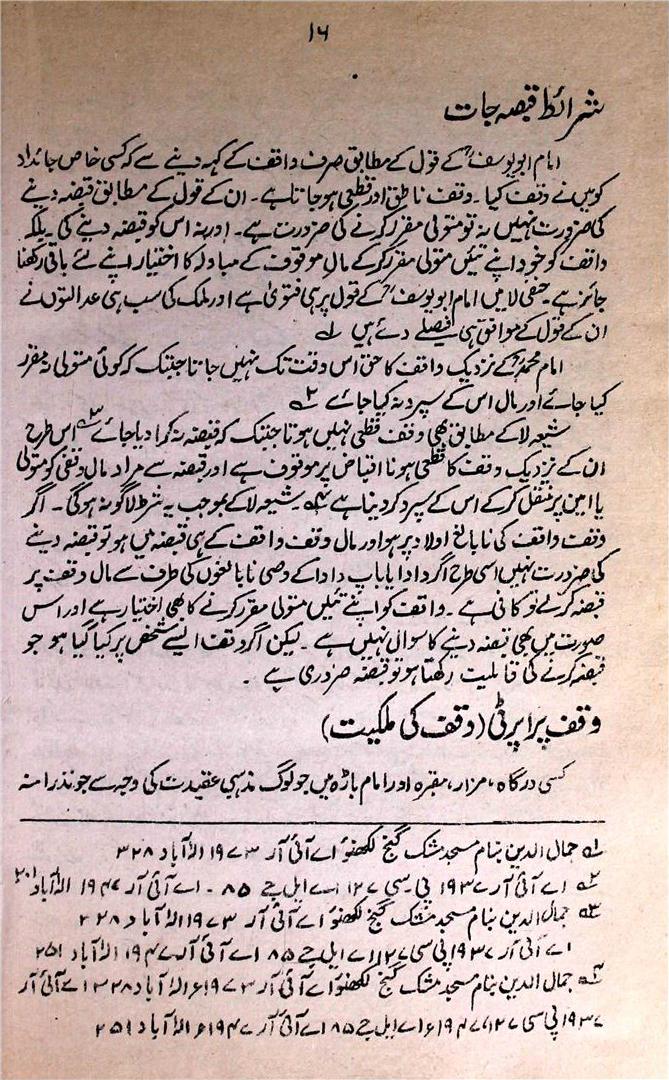 ۱۶
شرائط قبضہ جات
امام ابو یوسفؒ کے قول کے مطابق صرف واقف کے کہہ دینے سے کہ کسی خاص جائداد
کو میں نے وقف کیا۔ وقف ناطق اور قطعی ہو جاتا ہے۔ ان کے قول کے مطابق قبضہ دینے
کی ضرورت نہیں نہ تو متولی مقرر کرنے کی ضرورت ہے۔ اور نہ اس کو قبضہ دینے کی۔ بلکہ
واقف کو خود اپنے تئیں متولی مقرر کرکے مال موقوف کے مبادلہ کا اختیار اپنے لئے باقی رکھنا
جائز ہے۔ حنفی لا میں امام ابو یوسفؒ کے قول پر ہی فتویٰ ہے اور ملک کی سب ہی عدالتوں نے
ان کے قول کے موافق ہی فیصلے دئے ہیں ۱ے
امام محمدؒ کے نزدیک واقف کا حق اس وقت تک نہیں جاتا جبتک کہ کوئی متولی نہ مقرر
کیا جائے اور مال اس کے سپرد نہ کیا جائے ۲ے
شیعہ لا کے مطابق بھی وقف قطعی نہیں ہوتا جبتک کہ قبضہ نہ کرا دیا جائے ۳ے اس طرح
ان کے نزدیک وقف کا قطعی ہونا اقباض پر موقوف ہے اور قبضہ سے مراد مال وقفی کو متولی
یا امین پر منتقل کرکے اس کے سپرد کر دینا ہے ۴ے شیعہ لا کے بموجب یہ شرط لاگو نہ ہوگی۔ اگر
وقف واقف کی نابالغ اولاد پر ہو اور مال وقف واقف کے ہی قبضہ میں ہو تو قبضہ دینے
کی ضرورت نہیں اسی طرح اگر دادا یا باپ دادا کے وصی نابالغوں کی طرف سے مال وقف پر
قبضہ کر لے تو کافی ہے۔ واقف کو اپنے تئیں متولی مقرر کرنے کا بھی اختیار ہے اور اس
صورت میں بھی قبضہ دینے کا سوال نہیں ہے۔ لیکن اگر وقف ایسے شخص پر کیا گیا ہو جو
قبضہ کرنے کی قابلیت رکھتا ہو تو قبضہ ضروری ہے۔
وقف پراپرٹی (وقف کی ملکیت)
کسی درگاہ، مزار، مقبرہ اور امام باڑہ میں جو لوگ مذہبی عقیدت کی وجہ سے جو نذرانہ
۱ے جمال الدین بنام مسجد مشک گنج لکھنؤ اے آئی آر ۱۹۷۳ الٰہ آباد ۳۲۸
۲ے اے آئی آر ۱۹۳۷ پی سی ۱۲۷ اے ایل جے ۸۵۔ اے آئی آر ۱۹۴۷ الٰہ آباد ۲۰۱
۳ے جمال الدین بنام مسجد مشک گنج لکھنؤ اے آئی آر ۱۹۷۳ الٰہ آباد ۲۲۸
اے آئی آر ۱۹۳۷ پی سی ۱۲۷ اے ایل جے ۸۵ اے آئی آر ۱۹۴۷ الٰہ آباد ۲۵۱
۴ے جمال الدین بنام مسجد مشک گنج لکھنؤ اے آئی آر ۱۹۷۳ء الٰہ آباد ۳۲۸ اے آئی آر
۱۹۳۷ پی سی ۱۲۷، ۱۹۴۷ء اے ایل جے ۸۵ اے آئی آر ۱۹۴۷ء الٰہ آباد ۲۵۱